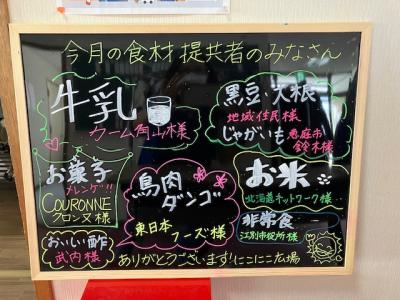 今月の食材 提共者のみなさん
牛乳
カーム角山様
黒豆・大根
地域住民様
じゃがいも 恵庭市
鈴木様
お菓子
メレンゲ!!
COURONNE
クロンヌ様
鳥肉
ダンゴ
東日本
フーズ様
お米
北海道ネットワーク様
非常食
江別市役所様
おいしい酢
武内様
ありがとうございます!にこにこ広場